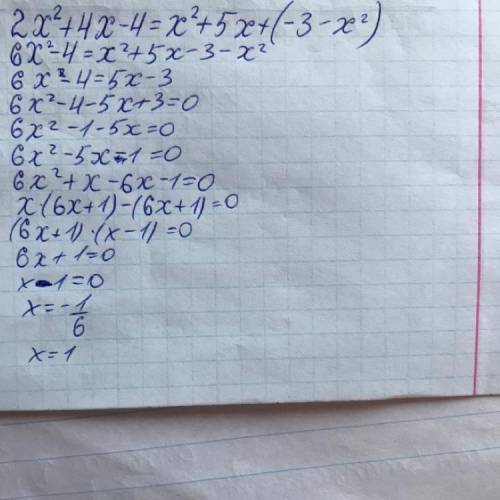 2x²+4x-4=x²+5x+(-3-x²)
6x²-4=x²+5x-3-x²
6x²-4=5x-3
6x²-4-5x+3=0
6x²-1-5x=0
6x²-5x-1=0
6x²+x-6x-1=0
x(6x+1)-(6x+1)=0
(6x+1)·(x-1)=0
6x+1=0
x-1=0
x=-1/6
x=1